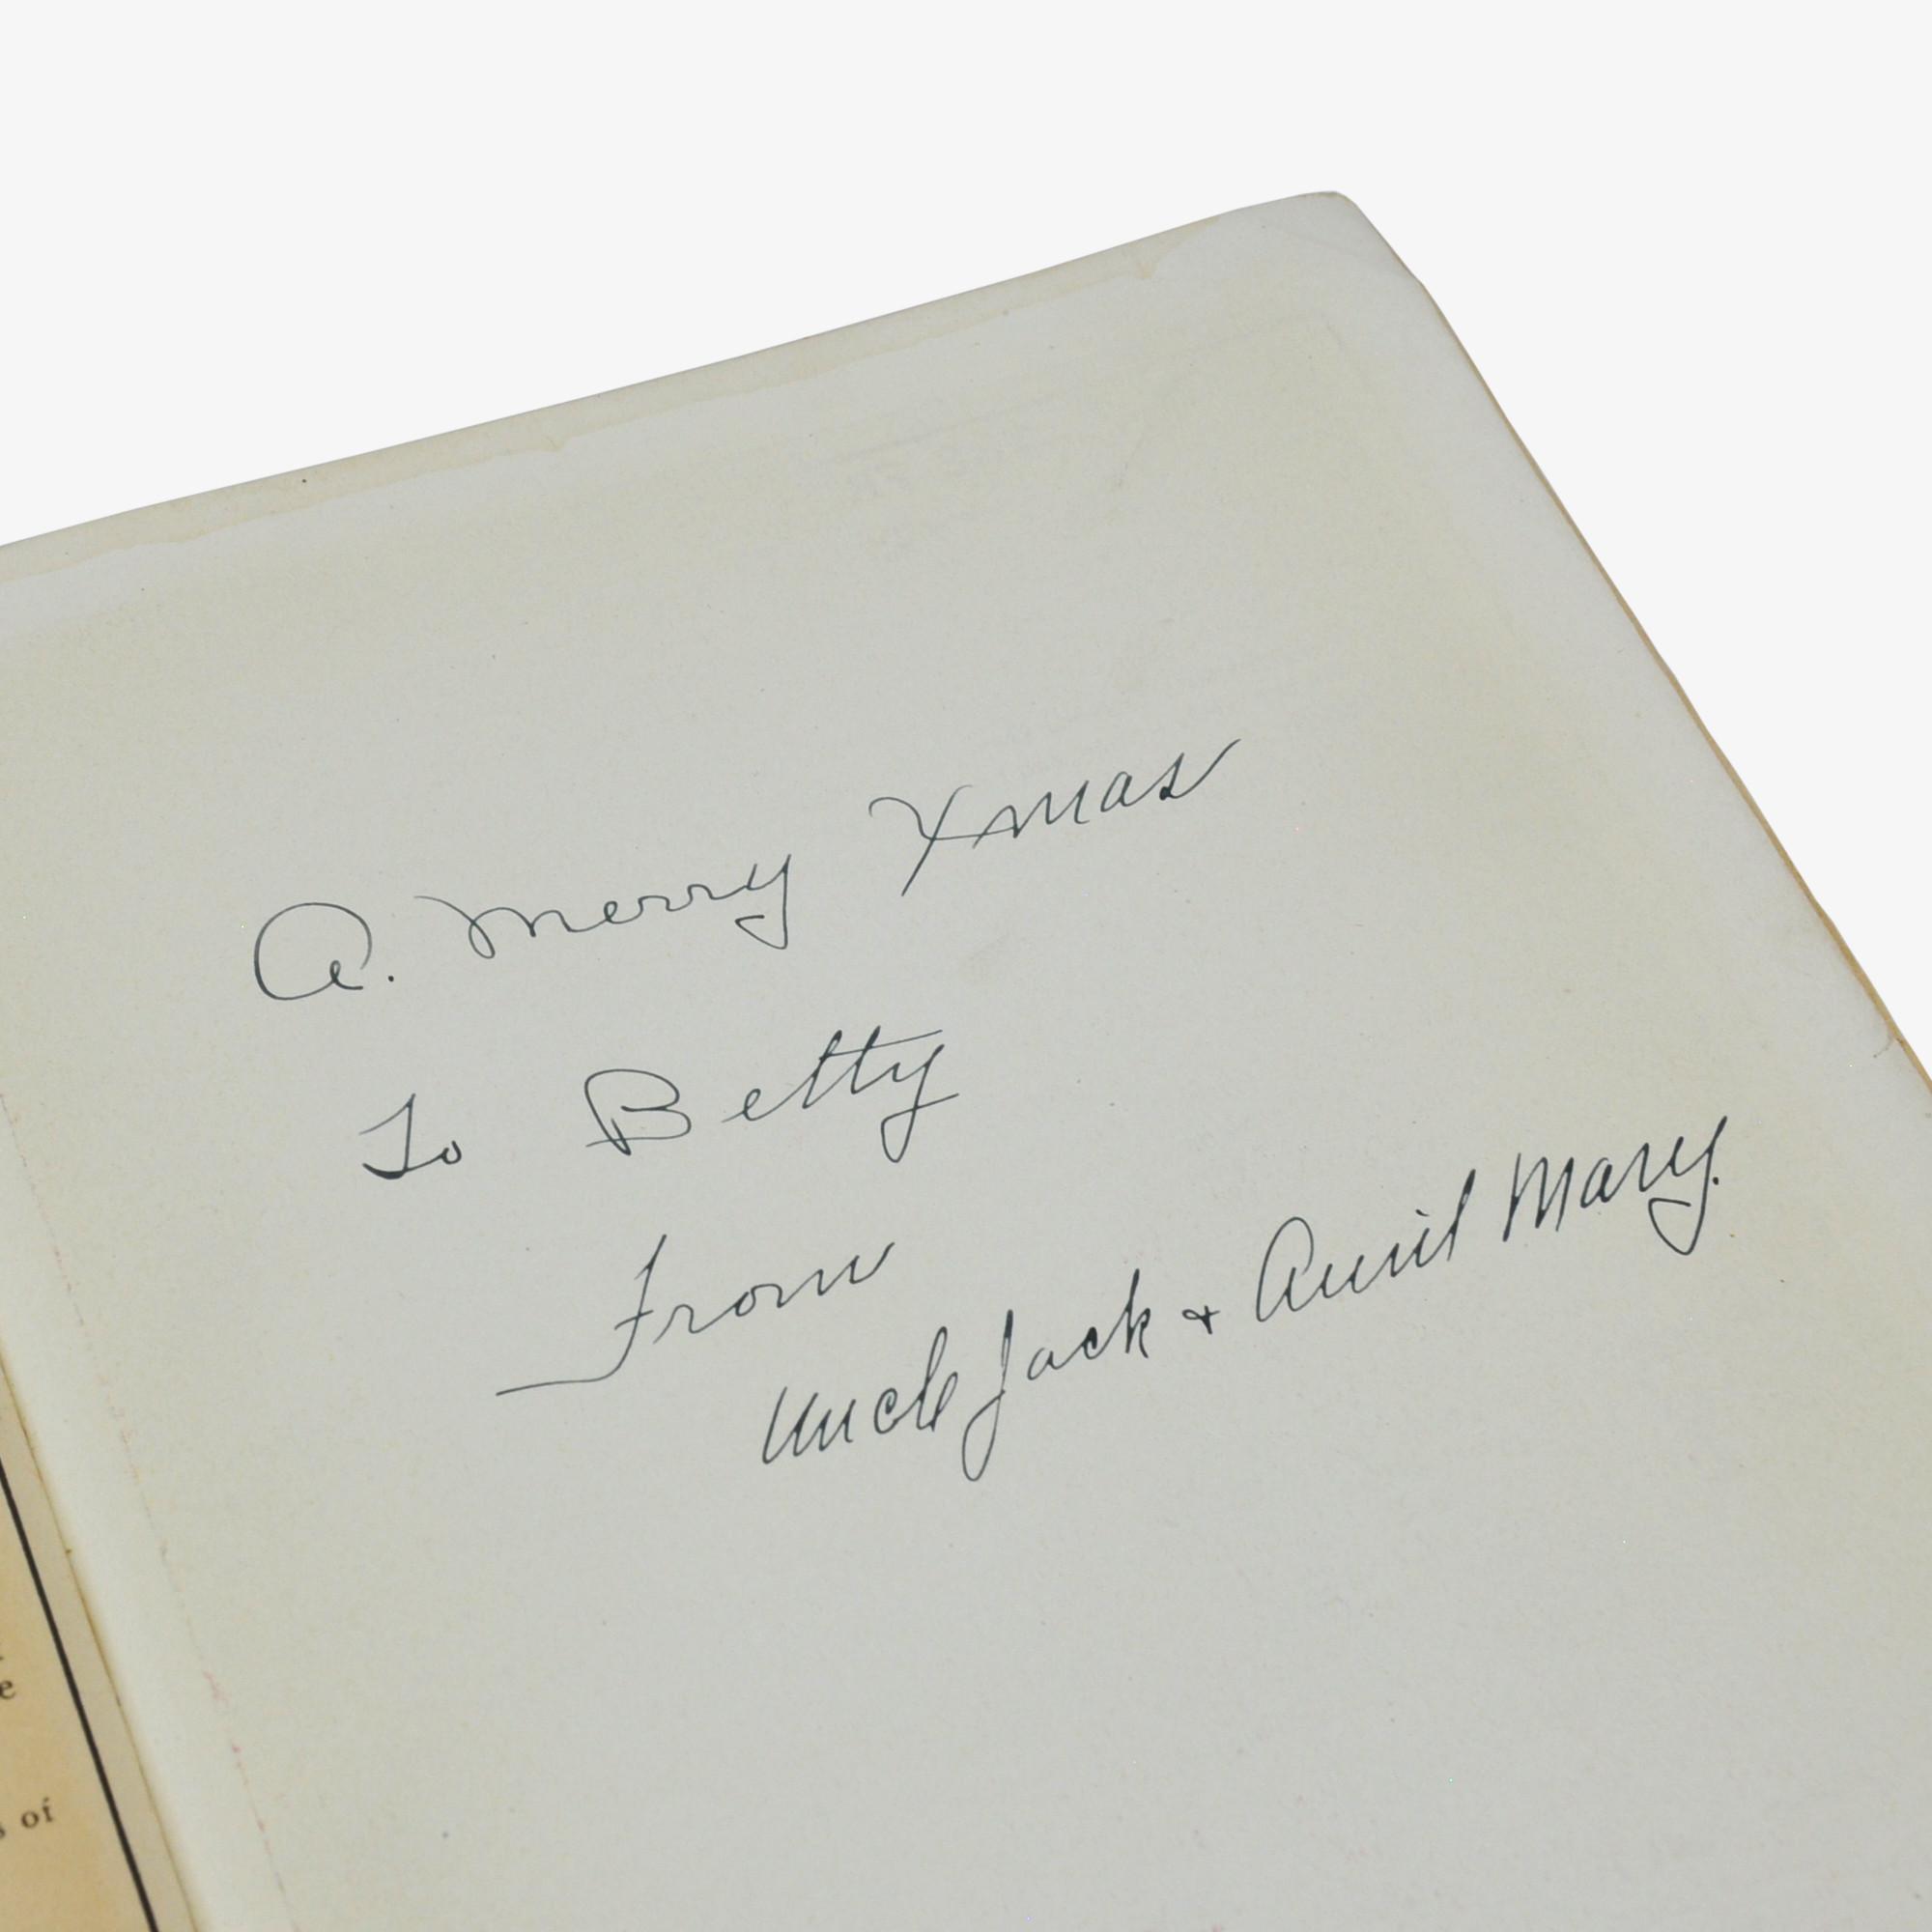 A. Merry Xmas
To Betty
From
Uncle Jack + Aunt Mary.
e
s of